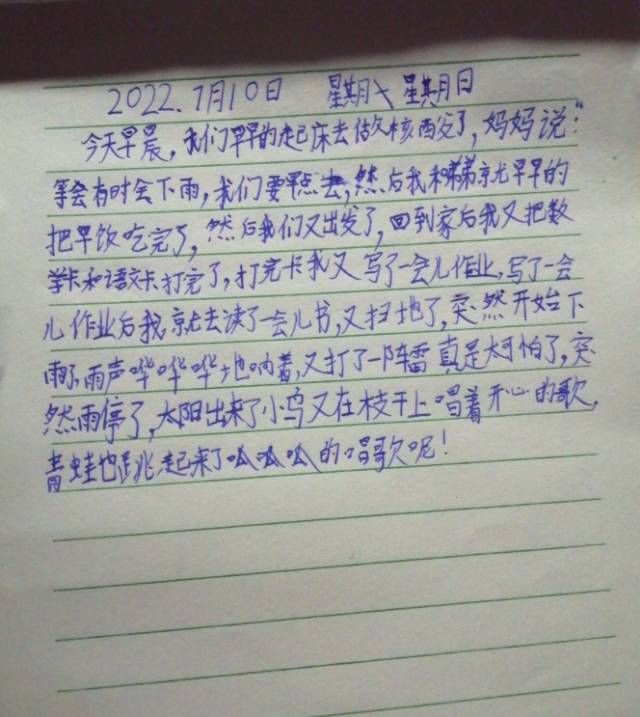 2022.7月10日 星期六 星期日
今天早晨，我们早早的起床去做核酸了，妈妈说：“
等会有时会下雨，我们要早点去，然后我和弟弟就早早的
把早饭吃完了，然后我们又出发了，回到家后我又把数
学卡和语文卡打完了，打完卡我又写了一会儿作业，写了一会
儿作业后我就去读了一会儿书，又扫地了，突然开始下
雨了雨声哗哗哗地响着，又打了一阵雷真是太可怕了，突
然雨停了，太阳出来了小鸟又在枝干上唱着开心的歌，
青蛙也跳起来了呱呱呱的唱歌呢！